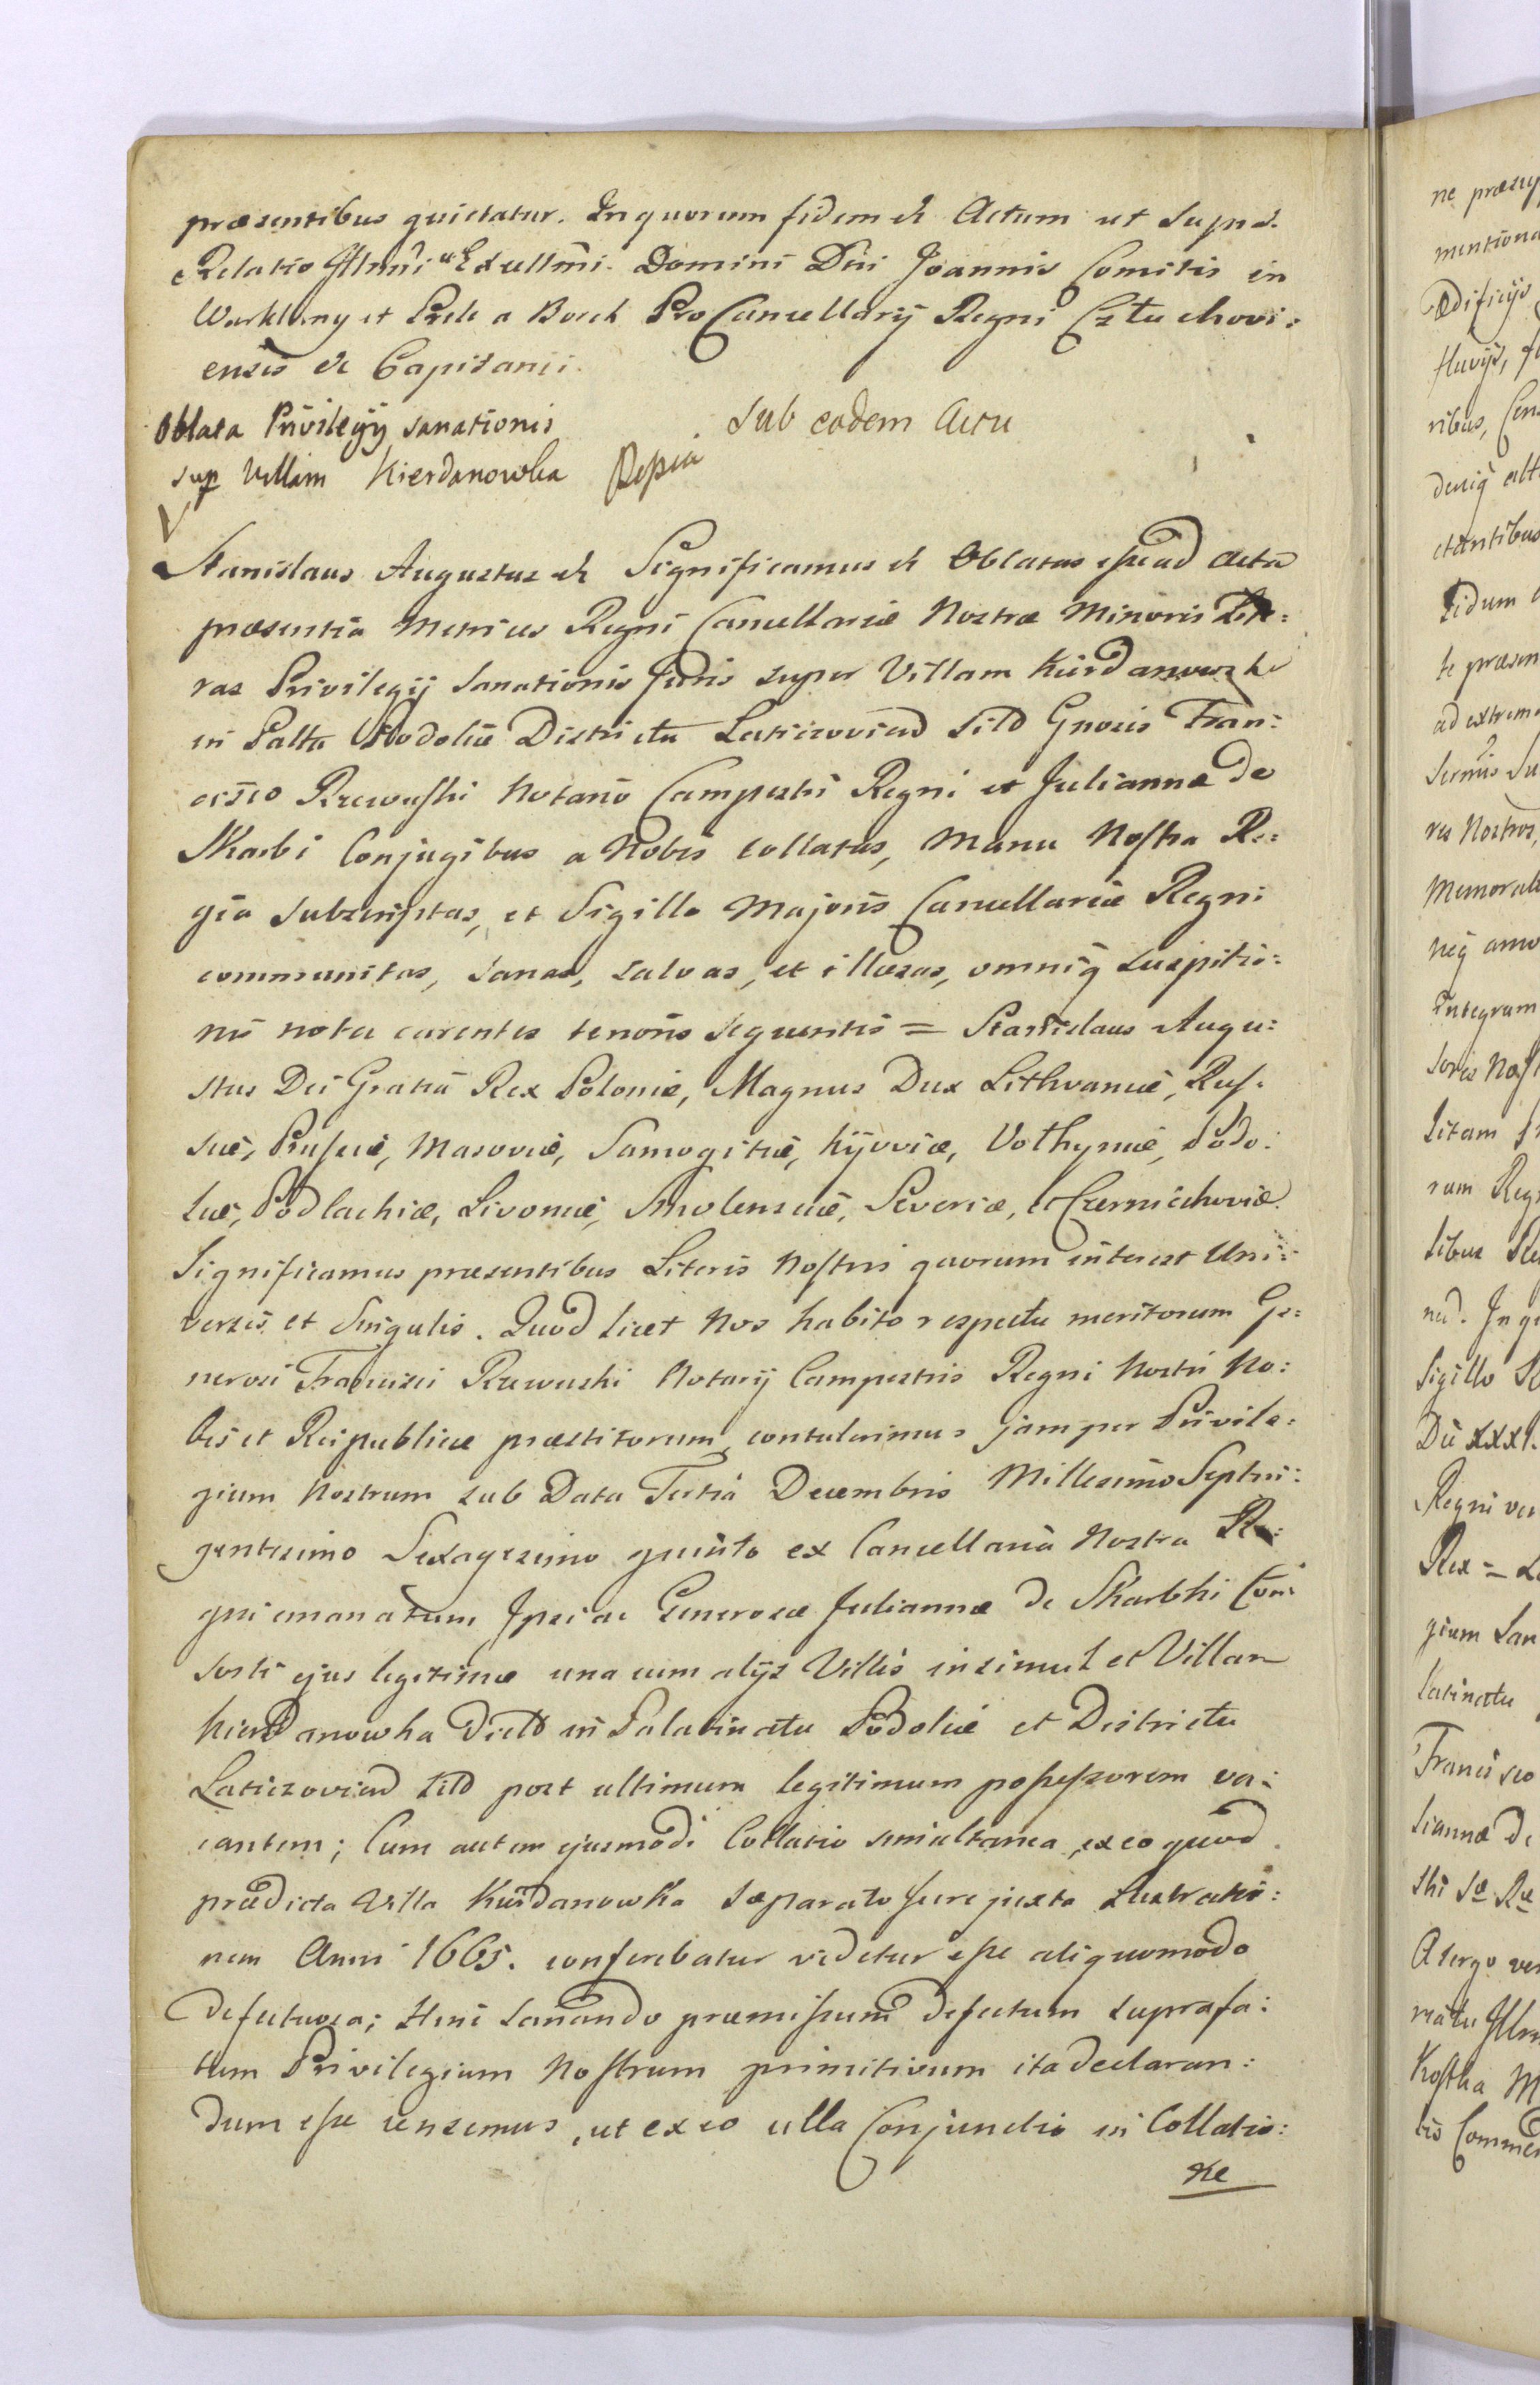 præsentibus quietatur. In quorum fidem &c Actum ut supra.
Relatio Illmi et Excellmi. Domini Dni Joannis Comitis in
Warklany et Prele a Borch Pro Cancellarij Regni Lztuchovi:
ensis &c Capitanei.
Oblata Privilegij sanationis
sup Villam Kierdanowka
Sub eodem Actu
Stanislaus Augustus &c Significamus &c Oblatas esse ad Acta
præsentia Metrices Regni Cancellariæ Nostræ Minoris Lite:
ras Privilegij Sanationis Juris super Villam Kierdanowzka
in Palttu Podoliæ Districtu Laticzoviens sitam Gnosis Fran:
cisco Rzewuski Notario Campestri Regni et Juliannæ de
Skarbi Conjugibus a Nobis collatas, Manu Nostra Re:
gia subscriptas, et Sigillo Majoris Cancellariæ Regni
communitas, sanas, salvas, et illæsas, omniq suspitio:
nis nota carentes tenoris sequentis = Stanislaus Augu:
stus Dei Gratia Rex Poloniæ, Magnus Dux Lithvaniæ, Rus:
siæ, Prussiæ, Masoviæ, Samogitiæ, Kijoviæ, Volhyniæ, Podo:
liæ, Podlachiæ, Livoniæ, Smolensciæ, Severiæ, et Czerniechoviæ.
Significamus præsentibus Literis Nostris quorum interest Uni:
versis et Singulis. Quod licet Nos habito respectu meritorum Ge:
nerosi Francisci Rzewuski Notarij Campestris Regni Nostri No:
bis et Reipublicæ præstitorum, contulerimus jam per Privile:
gium Nostrum sub Data Tertia Decembris Millesimo Septin:
gentesimo Sexagesimo quinto ex Cancellaria Nostra Re:
gni emanatum Ipsi ac Generosæ Juliannæ de Skarbki Con:
sorti ejus legitimæ una cum alijs Villis insimul et Villam
Kierdanowka dictam in Palatinatu Podoliæ et Districtu
Laticzoviens sitam post ultimum legitimum possessorem va:
cantem; Cum autem ejusmodi Collatio simultanea, ex eo quod
prædicta Villa Kierdanowka separato Jure juxta Lustratio:
nem Anni 1665. conferebatur videtur esse aliquomodo
defectuosa; Hinc sanando præmissum defectum supra fa:
tum Privilegium Nostrum primitivum ita declaran:
dum esse censemus, ut ex eo ulla Conjunctio in Collatio:
ne
ne præsu
mentiona
Ædificijs
fluvijs,
ribus,
deniq
ctantibus
te præsen
ad extrema
ves Nostros,
neq
Integram
rum Reg
libus
Sigillo
Regni
Rex =
gium San
latinatu
Francisco
liannæ de
A tergo
Kostka
tis Commen